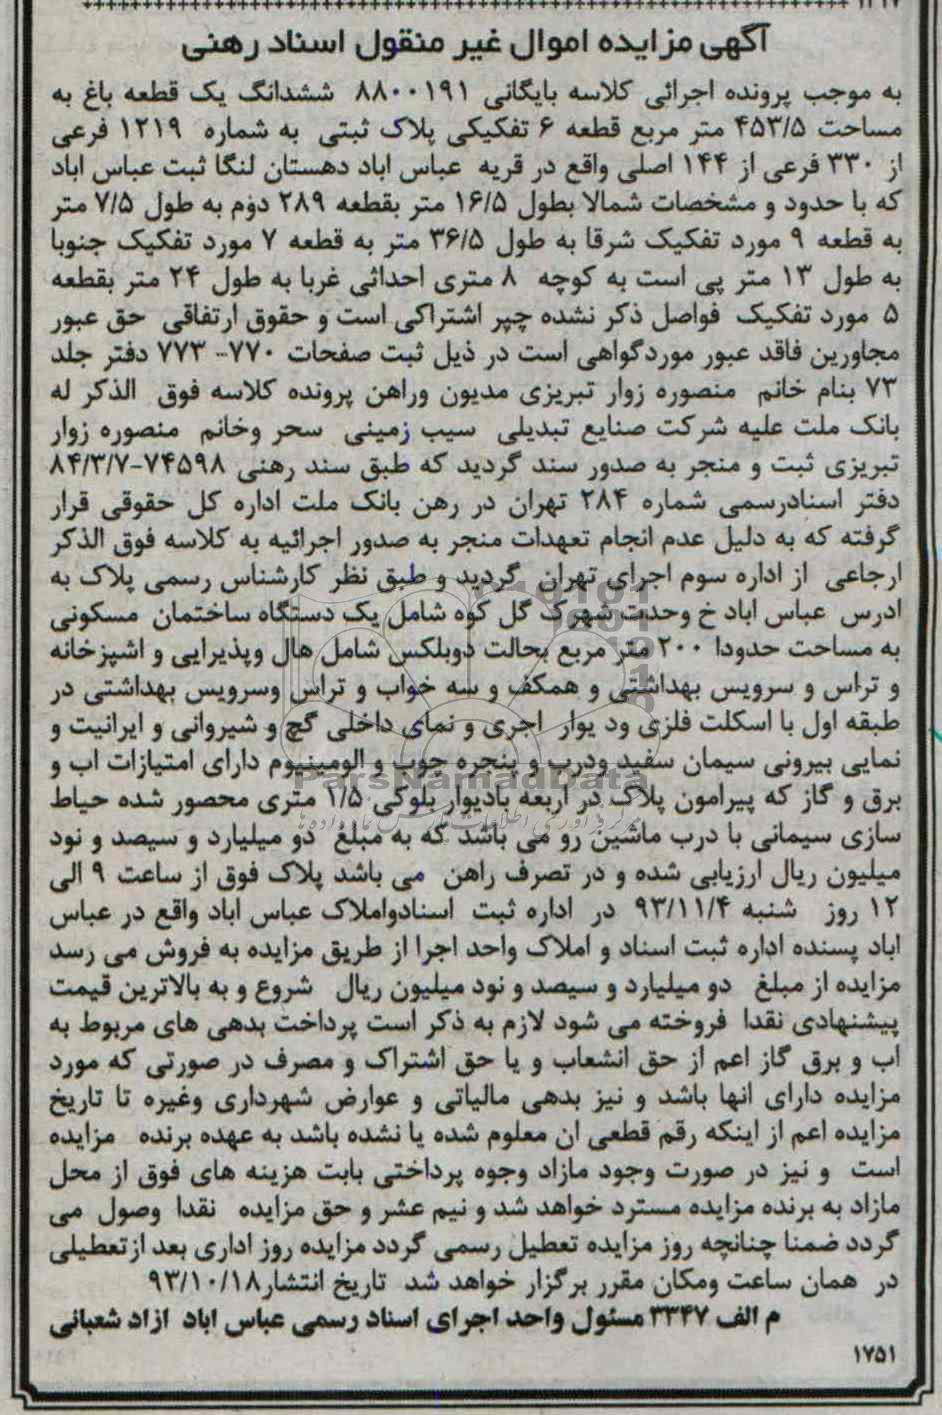 آگهی مزایده اموال غیر منقول اسناد رهنی
به موجب پرونده اجرائی کلاسه بایگانی ۸۸۰۰۱۹۱ ششدانگ یک قطعه باغ به
مساحت ۴۵۳/۵ متر مربع قطعه ۶ تفکیکی پلاک ثبتی به شماره ۱۲۱۹ فرعی
از ۳۳۰ فرعی از ۱۴۴ اصلی واقع در قریه عباس اباد دهستان لنگا ثبت عباس اباد
که با حدود و مشخصات شمالا بطول ۱۶/۵ متر بقطعه ۲۸۹ دوم به طول ۷/۵ متر
به قطعه ۹ مورد تفکیک شرقا به طول ۳۶/۵ متر به قطعه ۷ مورد تفکیک جنوبا
به طول ۱۳ متر پی است به کوچه ۸ متری احداثی غربا به طول ۲۴ متر بقطعه
۵ مورد تفکیک فواصل ذکر نشده چپر اشتراکی است و حقوق ارتفاقی حق عبور
مجاورین فاقد عبور موردگواهی است در ذیل ثبت صفحات ۷۷۰-۷۷۳ دفتر جلد
۷۳ بنام خانم منصوره زوار تبریزی مدیون وراهن پرونده کلاسه فوق الذکر له
بانک ملت علیه شرکت صنایع تبدیلی سیب زمینی سحر وخانم منصوره زوار
تبریزی ثبت و منجر به صدور سند گردید که طبق سند رهنی ۷۴۵۹۸-۸۴/۳/۷
دفتر اسنادرسمی شماره ۲۸۴ تهران در رهن بانک ملت اداره کل حقوقی قرار
گرفته که به دلیل عدم انجام تعهدات منجر به صدور اجرائیه به کلاسه فوق الذکر
ارجاعی از اداره سوم اجرای تهران گردید و طبق نظر کارشناس رسمی پلاک به
ادرس عباس اباد خ وحدت شهرک گل کوه شامل یک دستگاه ساختمان مسکونی
به مساحت حدودا ۲۰۰ متر مربع بحالت دوبلکس شامل هال وپذیرایی و اشپزخانه
و تراس و سرویس بهداشتی و همکف و سه خواب و تراس وسرویس بهداشتی در
طبقه اول با اسکلت فلزی ود یوار اجری و نمای داخلی گچ و شیروانی و ایرانیت و
نمایی بیرونی سیمان سفید ودرب و پنجره چوب و الومینیوم دارای امتیازات اب و
ParsNamadData
برق و گاز که پیرامون پلاک در اربعه بادیوار بلوکی ۱/۵ متری محصور شده حیاط
سازی سیمانی با درب ماشین رو می باشد که به مبلغ دو میلیارد و سیصد و نود
میلیون ریال ارزیابی شده و در تصرف راهن می باشد پلاک فوق از ساعت ۹ الی
۱۲ روز شنبه ۹۳/۱۱/۴ در اداره ثبت اسنادواملاک عباس اباد واقع در عباس
اباد پسنده اداره ثبت اسناد و املاک واحد اجرا از طریق مزایده به فروش می رسد
مزایده از مبلغ دو میلیارد و سیصد و نود میلیون ریال شروع و به بالاترین قیمت
پیشنهادی نقدا فروخته می شود لازم به ذکر است پرداخت بدهی های مربوط به
اب و برق گاز اعم از حق انشعاب و یا حق اشتراک و مصرف در صورتی که مورد
مزایده دارای انها باشد و نیز بدهی مالیاتی و عوارض شهرداری وغیره تا تاریخ
مزایده اعم از اینکه رقم قطعی ان معلوم شده یا نشده باشد به عهده برنده مزایده
است و نیز در صورت وجود مازاد وجوه پرداختی بابت هزینه های فوق از محل
مازاد به برنده مزایده مسترد خواهد شد و نیم عشر و حق مزایده نقدا وصول می
گردد ضمنا چنانچه روز مزایده تعطیل رسمی گردد مزایده روز اداری بعد ازتعطیلی
در همان ساعت ومکان مقرر برگزار خواهد شد تاریخ انتشار۹۳/۱۰/۱۸
م الف ۳۳۴۷ مسئول واحد اجرای اسناد رسمی عباس اباد ازاد شعبانی
۱۷۵۱